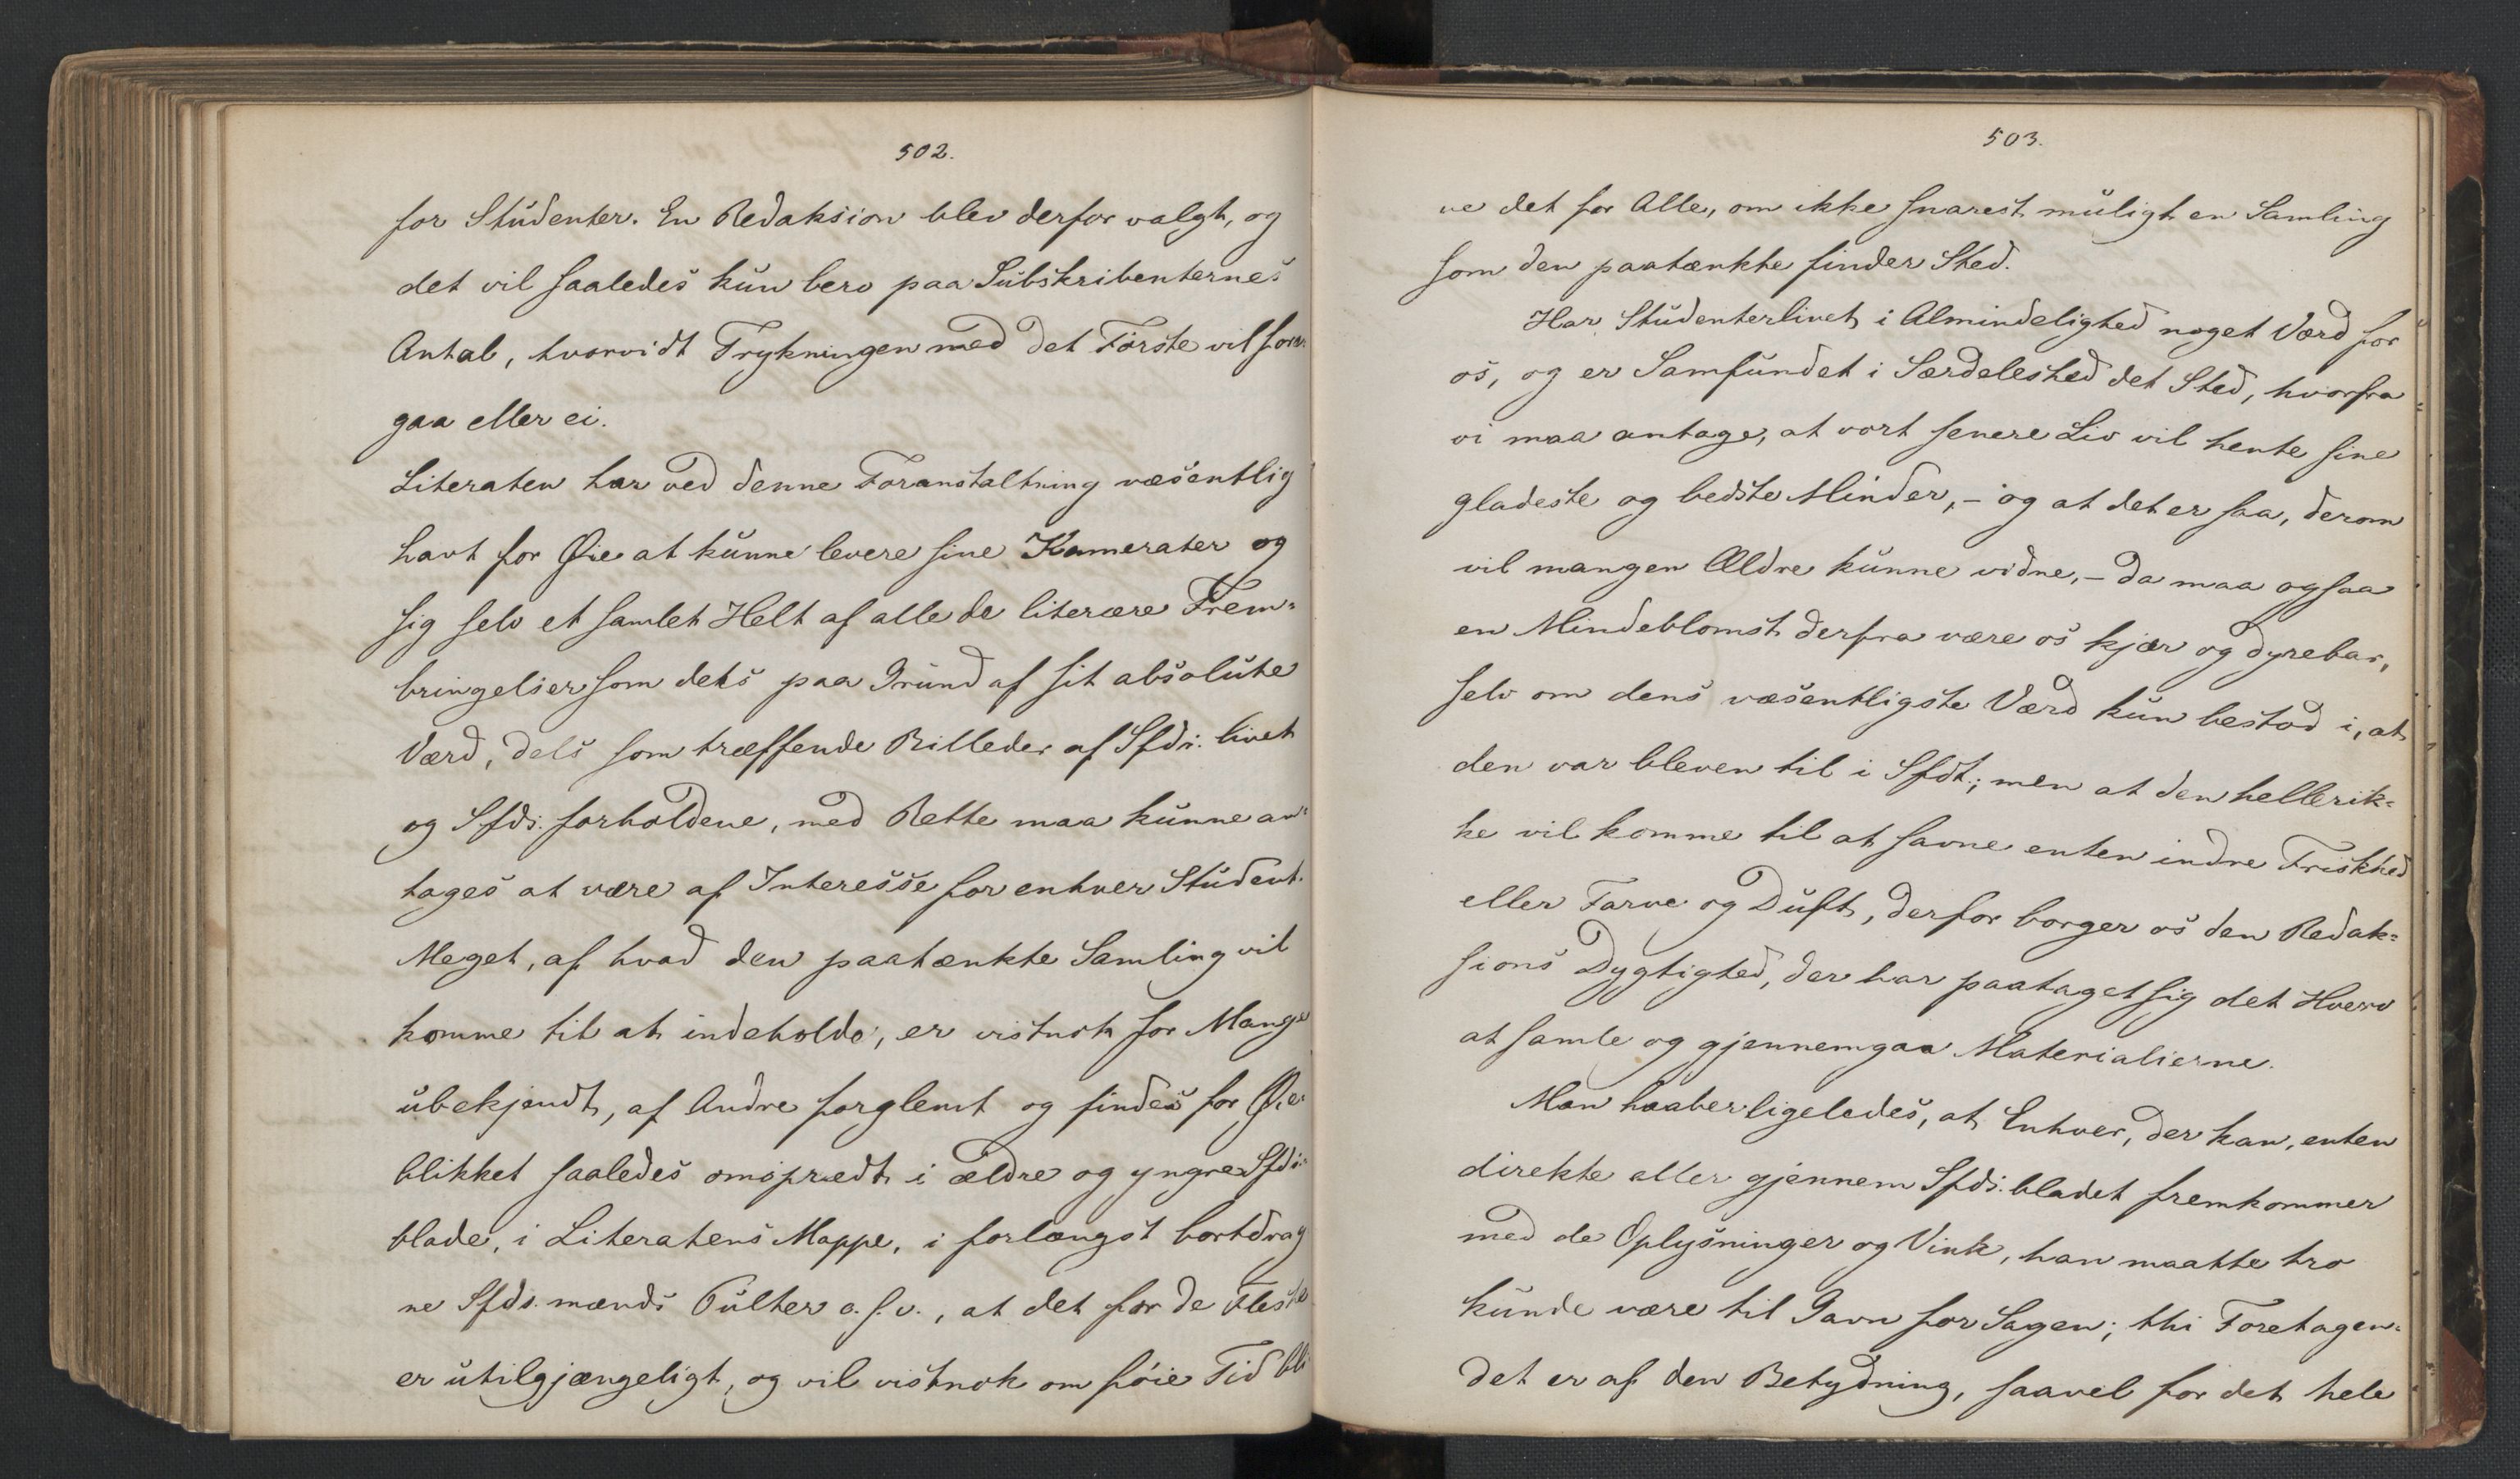 502.
for Studenter. En Redaksion blev derfor valgt, og
det vil saaledes kun bero paa Subskribenternes
Antal, hvorvidt Trykningen med det Første vil for
gaa eller ei.
Literaten har ved denne Foranstaltning væsentlig
havt for Øie at kunne levere sine Kamerater og
sig selv et samlet Helt af alle de literære Frem-
bringelser som dels paa Grund af sit absolute
Værd, dels som træffende Billeder af Sfds. livet
og Sfds. forholdene, med Rette maa kunne an-
tages at være af Interesse for enhver Student.
Meget, af hvad den paatænkte Samling vil
komme til at indeholde, er vistnok for Mange
ubekjendt, af Andre forglemt og findes for Øie-
blikket saaledes omspredt i ældre og yngre Sfds.
blade, i Literatens Mappe, i forlængst bortdrag
ne Sfds. mænds Pulter o. s. v., at det for de Fleste
er utilgjængeligt, og vil vistnok om føie Tid bli
503.
ve det for Alle, om ikke snarest muligt en Samling
som den paatænkte finder Sted.
Har Studenterlivet i Almindelighed noget Værd for
os, og er Samfundet i Særdeleshed det Sted, hvorfra
vi maa antage, at vort senere Liv vil hente sine
gladeste og bedste Minder, – og at det er saa, derom
vil mangen Ældre kunne vidne, – da maa ogsaa
en Mindeblomst derfra være os kjær og dyrebar,
selv om dens væsentligste Værd kun bestod i, at
den var bleven til i Sfdt.; men at den heller ik-
ke vil komme til at savne enten indre Friskhed
eller Farve og Duft, derfor borger os den Redak-
sions Dygtighed, der har paataget sig det Hverv
at samle og gjennemgaa Materialierne.
Man haaber ligeledes, at Enhver, der kan, enten
direkte eller gjennem Sfds. bladet fremkommer
med de Oplysninger og Vink, han maatte tro
kunde være til Gavn for Sagen; thi Foretagen-
det er af den Betydning, saavel for det hele